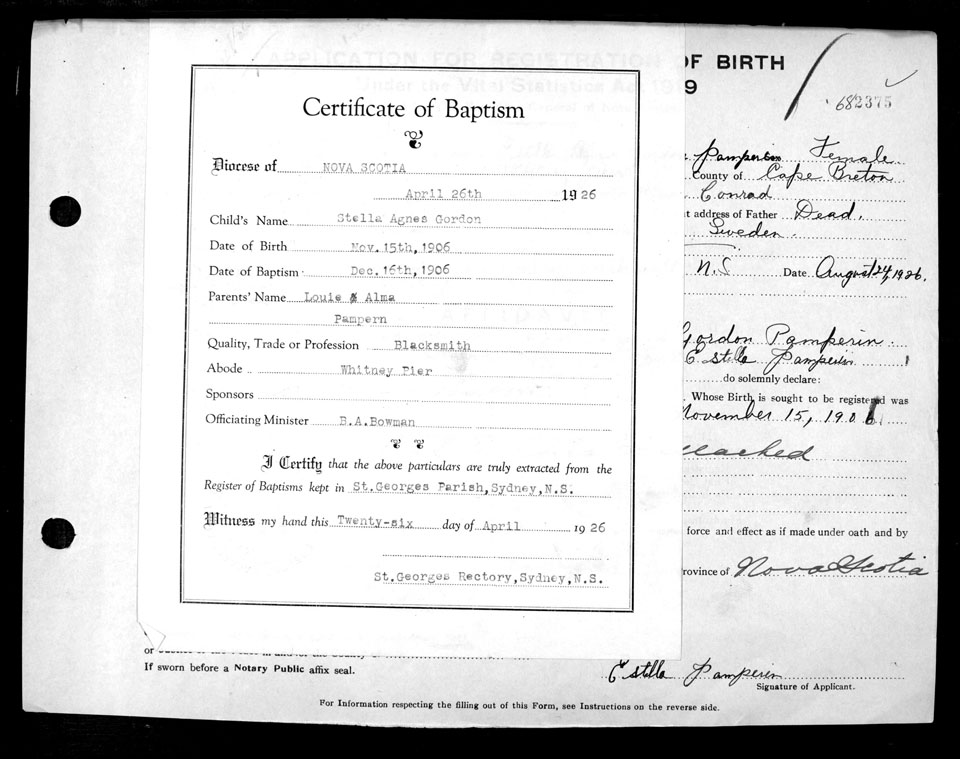 APPLICATION FOR REGISTRATION OF BIRTH
Under the Vital Statistics Act, 1919
682375
Certificate of Baptism
Diocese of NOVA SCOTIA
April 26th 1926
Child's Name Stella Agnes Gordon
Date of Birth Nov. 15th, 1906
Date of Baptism Dec. 16th, 1906
Parents' Name Louie & Alma
Pampern
Quality, Trade or Profession Blacksmith
Abode Whitney Pier
Sponsors
Officiating Minister B.A.Bowman
I Certify that the above particulars are truly extracted from the
Register of Baptisms kept in St.Georges Parish,Sydney,N.S.
Witness my hand this Twenty-six day of April 1926
St.Georges Rectory,Sydney,N.S.
Pamperin Female
County of Cape Breton
Conrad
address of Father Dead.
Sweden
N.S Date August 24, 1926.
Gordon Pamperin
Estella Pamperin
do solemnly declare:
Whose Birth is sought to be registered was
November 15, 1906
force and effect as if made under oath and by
Province of Nova Scotia
or
If sworn before a Notary Public affix seal.
Estella Pamperin
Signature of Applicant.
For Information respecting the filling out of this Form, see Instructions on the reverse side.